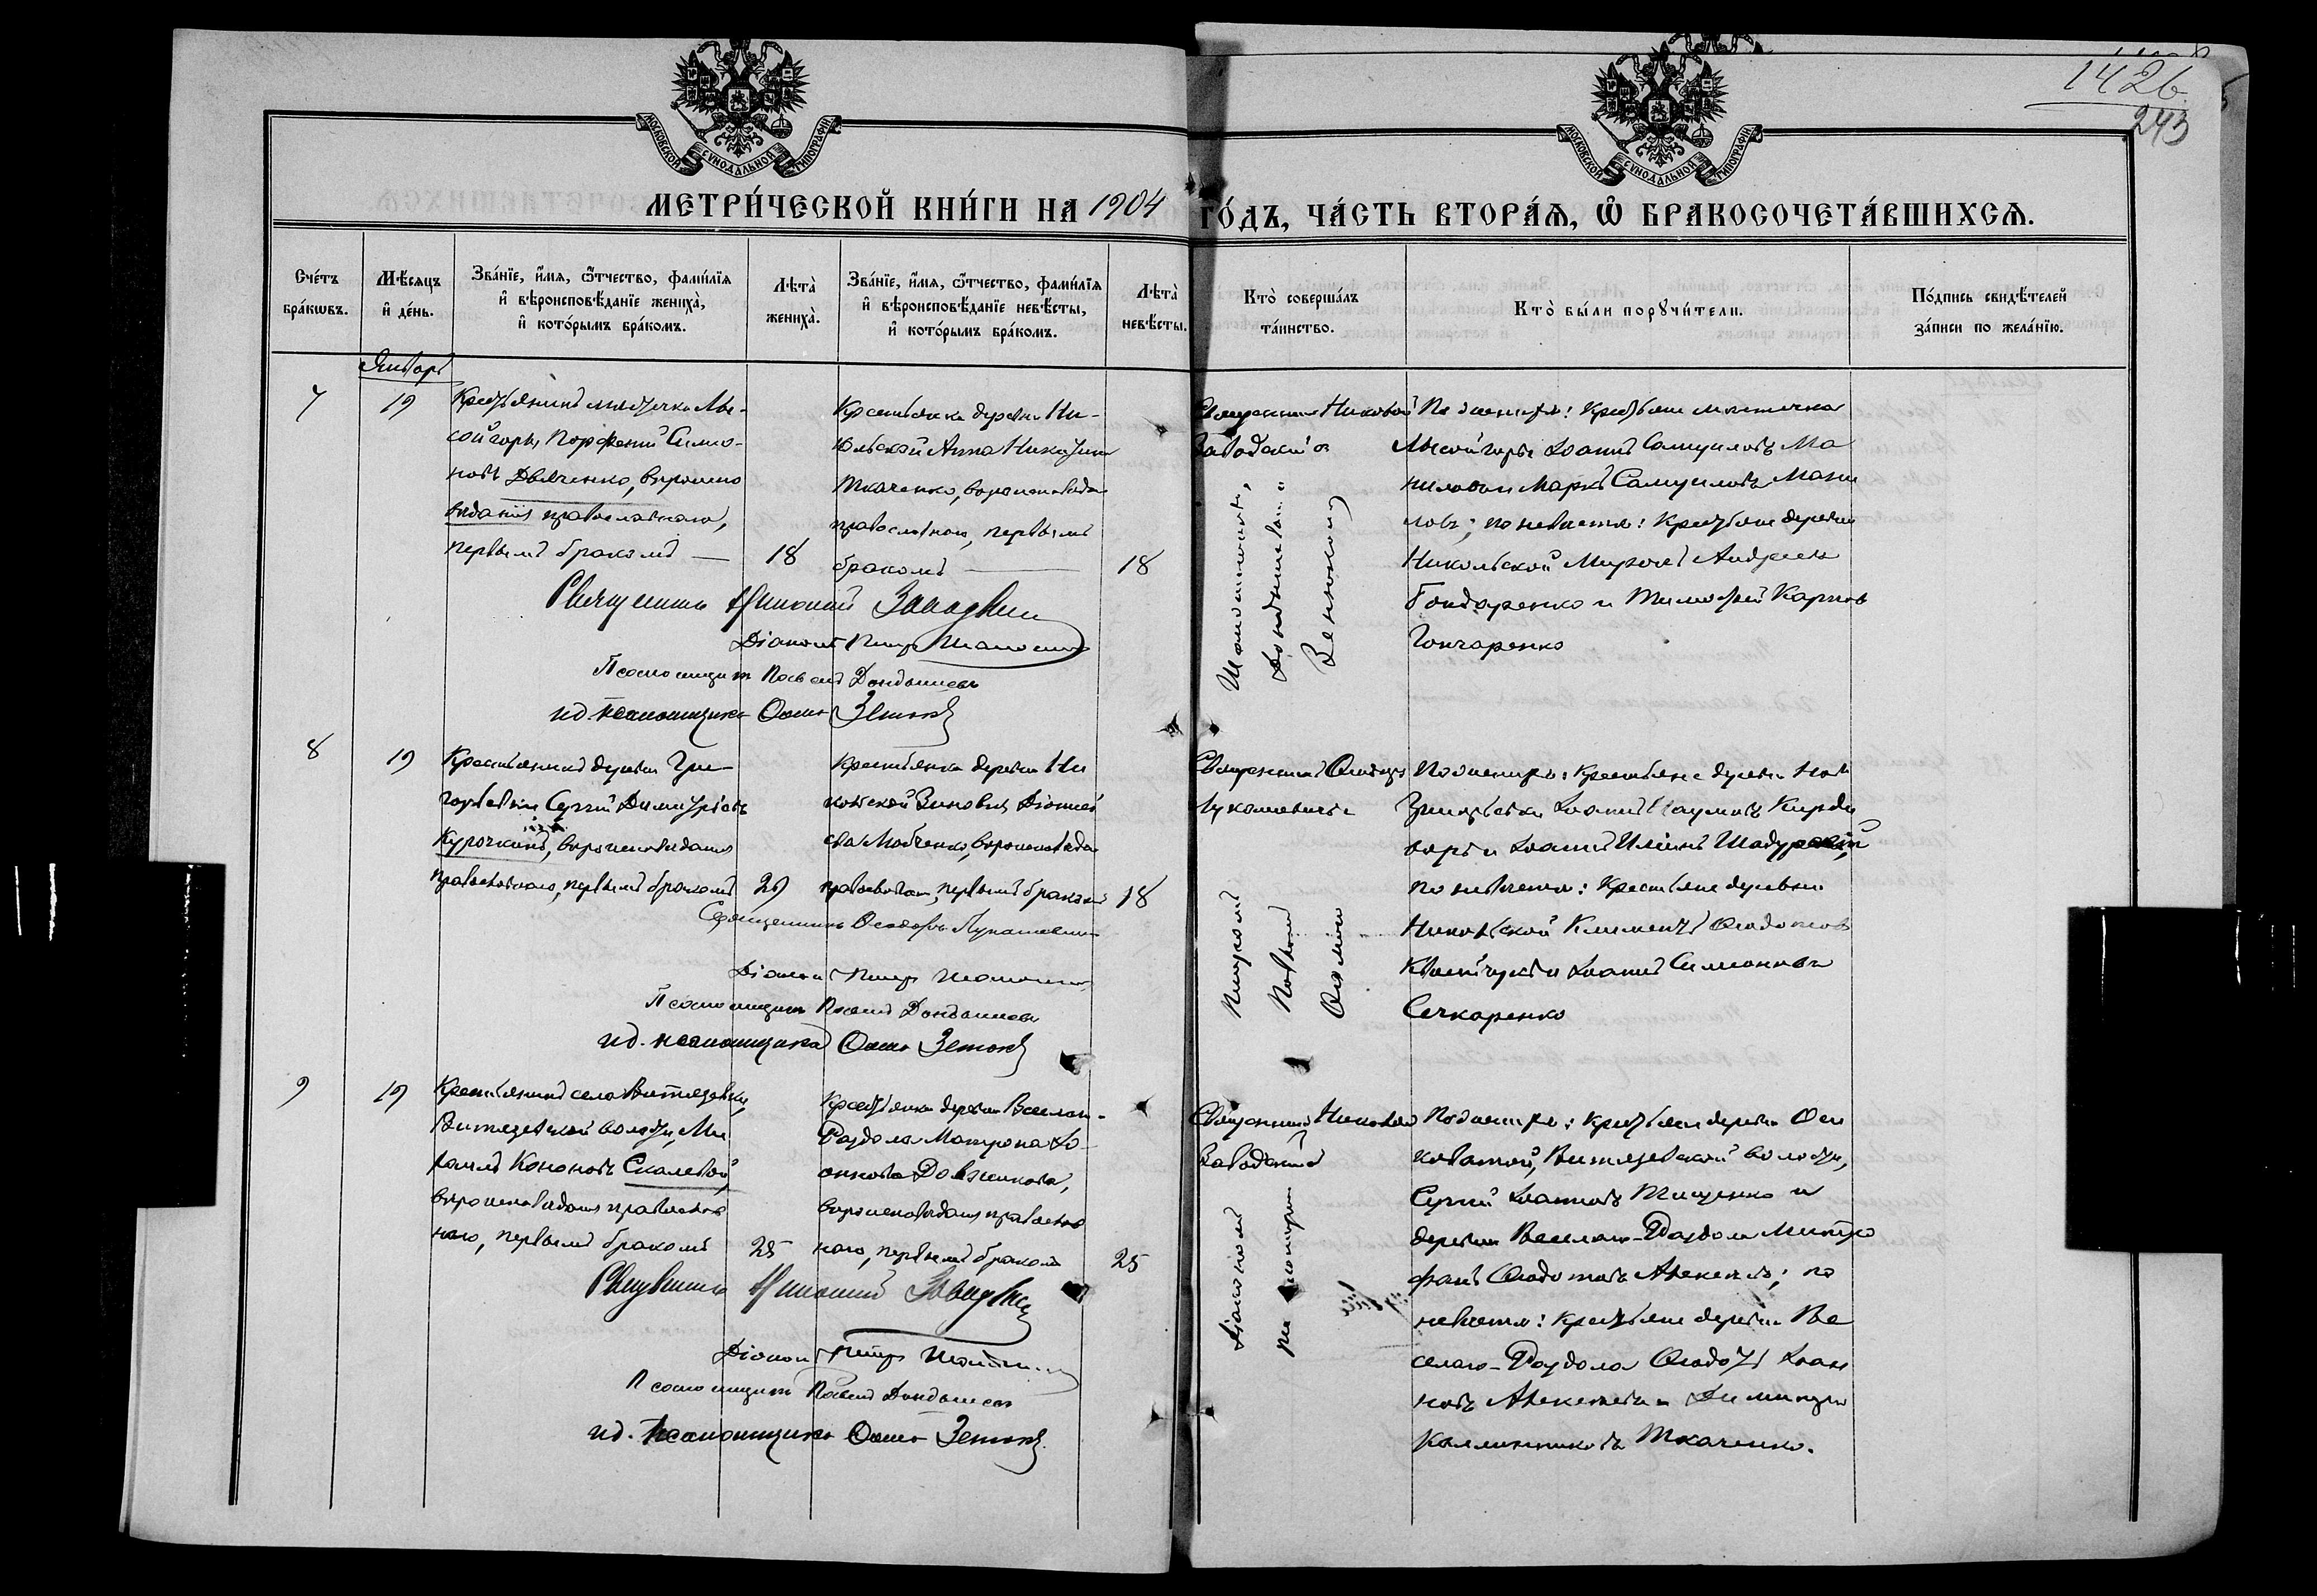 1426
243
МОСКОВСКОЙ СѴНОДАЛЬНОЙ ТИПОГРАФІИ
МОСКОВСКОЙ СѴНОДАЛЬНОЙ ТИПОГРАФІИ
МЕТРИ́ЧЕСКОЙ КНИ́ГИ НА 1904 ГО́ДЪ, ЧА́СТЬ ВТОРА́Я, Ѽ БРАКОСОЧЕТА́ВШИХСЯ.
Сче́тъ
бра́кѡвъ.
Мѣ́сяцъ
и҆ де́нь.
Зва́нїе, и҆́мя, ѻ҆́тчество, фами́лїя
и҆ вѣроисповѣ́данїе жениха̀,
и҆ кото́рымъ бра́комъ.
Лѣта̀
жениха̀.
Зва́нїе, и҆́мя, ѻ҆́тчество, фами́лїя
и҆ вѣроисповѣ́данїе невѣ́сты,
и҆ кото́рымъ бра́комъ.
Лѣта̀
невѣ́сты.
Кто̀ соверша́лъ
та́инство.
Кто̀ бы́ли порꙋчи́тели.
По́дпись свидѣ́телей
за́писи по жела́нїю.
Январь
7
19
Крестьянинъ мѣстечка Лы-
сой горы, Порфирій Симо-
новъ Дьяченко, вѣроиспо
вѣданія православнаго,
первымъ бракомъ
18
Крестьянка деревни Ни-
кольской Анна Никитина
Ткаченко, вѣроисповѣда
православнаго, первымъ
бракомъ
18
Священникъ Николай
Заводскій
По женихѣ: крестьяне мѣстечка
Лысой горы Іоаннъ Самуиловъ Ма
ниловъ и Маркъ Самуиловъ Мани
ловъ; по невѣстѣ: крестьяне деревни
Никольской Миронъ Андреевъ
Бондаренко и Тимофей Карповъ
Гончаренко
Священникъ Николай Заводскій
Діаконъ Петръ
Псаломщикъ Павелъ
и.д. псаломщика
8
19
Крестьянинъ деревни Гри-
горьевки Сергій Димитріевъ
Курочкинъ, вѣроисповѣданія
православнаго, первымъ бракомъ
29
Крестьянка деревни Ни
кольской Зиновія Діонисі
ева, вѣроисповѣда
православнаго, первымъ бракомъ
18
Священникъ Ѳеодоръ
Лукашевичъ
По женихѣ: крестьяне деревни Ново
Григорьевки Іоаннъ Наумовъ
и Іоаннъ Иліинъ
по невѣстѣ: крестьяне деревни
Никольской Климентъ Ѳеодотовъ
и Іоаннъ Симеоновъ
Сечкаренко
Священникъ Ѳеодоръ Лукашевичъ
Діаконъ Петръ
Псаломщикъ Павелъ
и.д. псаломщика
9
19
Крестьянинъ села Витязевки,
Витязевской волости, Ми
хаилъ Кононовъ Скалевой,
вѣроисповѣданія православ
наго, первымъ бракомъ
25
Крестьянка деревни Веселаго-
Раздола Матрона Іо-
аннова Должикова,
вѣроисповѣданія православ
наго, первымъ бракомъ
25
Священникъ Николай
Заводскій
По женихѣ: крестьяне деревни Оси
коватой, Витязевской волости,
Сергій Іоанновъ Тищенко и
деревни Веселаго-Раздола Митро
фанъ Ѳеодотовъ Алексѣевъ; по
невѣстѣ: крестьяне деревни Ве
селаго-Раздола Ѳеодотъ Іоан
новъ Алексѣевъ и Димитрій
Каллиниковъ Ткаченко.
Священникъ Николай Заводскій
Діаконъ Петръ
Псаломщикъ Павелъ
и.д. псаломщика